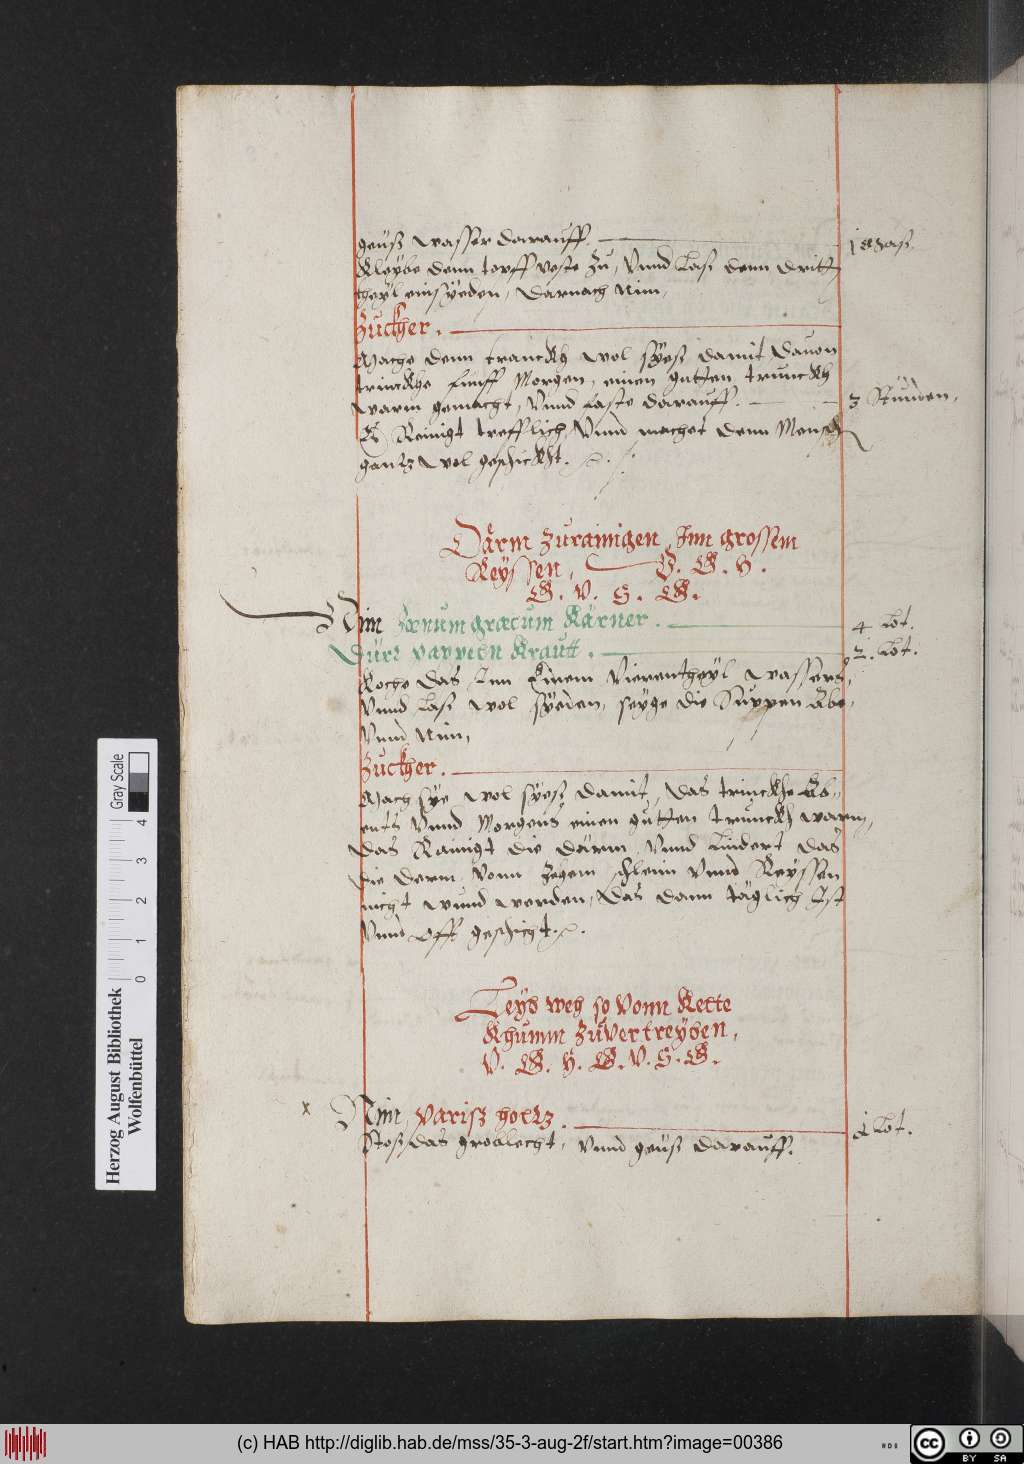 geüsz wasser darauff. 1 Masz.
Kleybe denn topff veste zu, Vnnd lasz denn dritt
theyl einsyeden, Darnach Nim,
Zuckher.
Mache denn tranckh wol syesz damit, Dauon
trinckhe fünff Morgen, einen gutten trunckh
warm gemacht, Vnnd faste darauff. 3 Stunden.
Es Reinigt trefflich, Vnnd machet denn Mensch
gantz wol geschickht.
Därm zurainigen Inn grossem
Reyssen,
Nim Fœnum græcum Kärner. 4 Lot.
Dürr pappeln Krautt. 2. Lot.
Koche das Inn Einem Vierentheyl wassers,
Vnnd lasz wol syeden, seyge die Suppen Abe,
Vnnd Nim,
Zuckher.
Mach sye wol syesz damit, das trinckhe Ab-
ents Vnnd Morgens einen gutten trunckh warm,
das Rainigt die därm Vnnd lindert das
die derm Vonn zehem schleim Vnnd Reyssen
nicht wund werden, das dann täglich Ist
Vnnd offt geschicht.
Leyb weh so Vonn Kelte
Khumm zuuertreyben,
V. W. H. W. V. S. W.
x Nim Parisz holtz. 1 Lot.
Stosz das groblecht, Vnnd geüsz darauff.
Herzog August Bibliothek
Wolfenbüttel
0 1 2 3 4
Gray Scale
(c) HAB http://diglib.hab.de/mss/35-3-aug-2f/start.htm?image=00386
cc BY SA